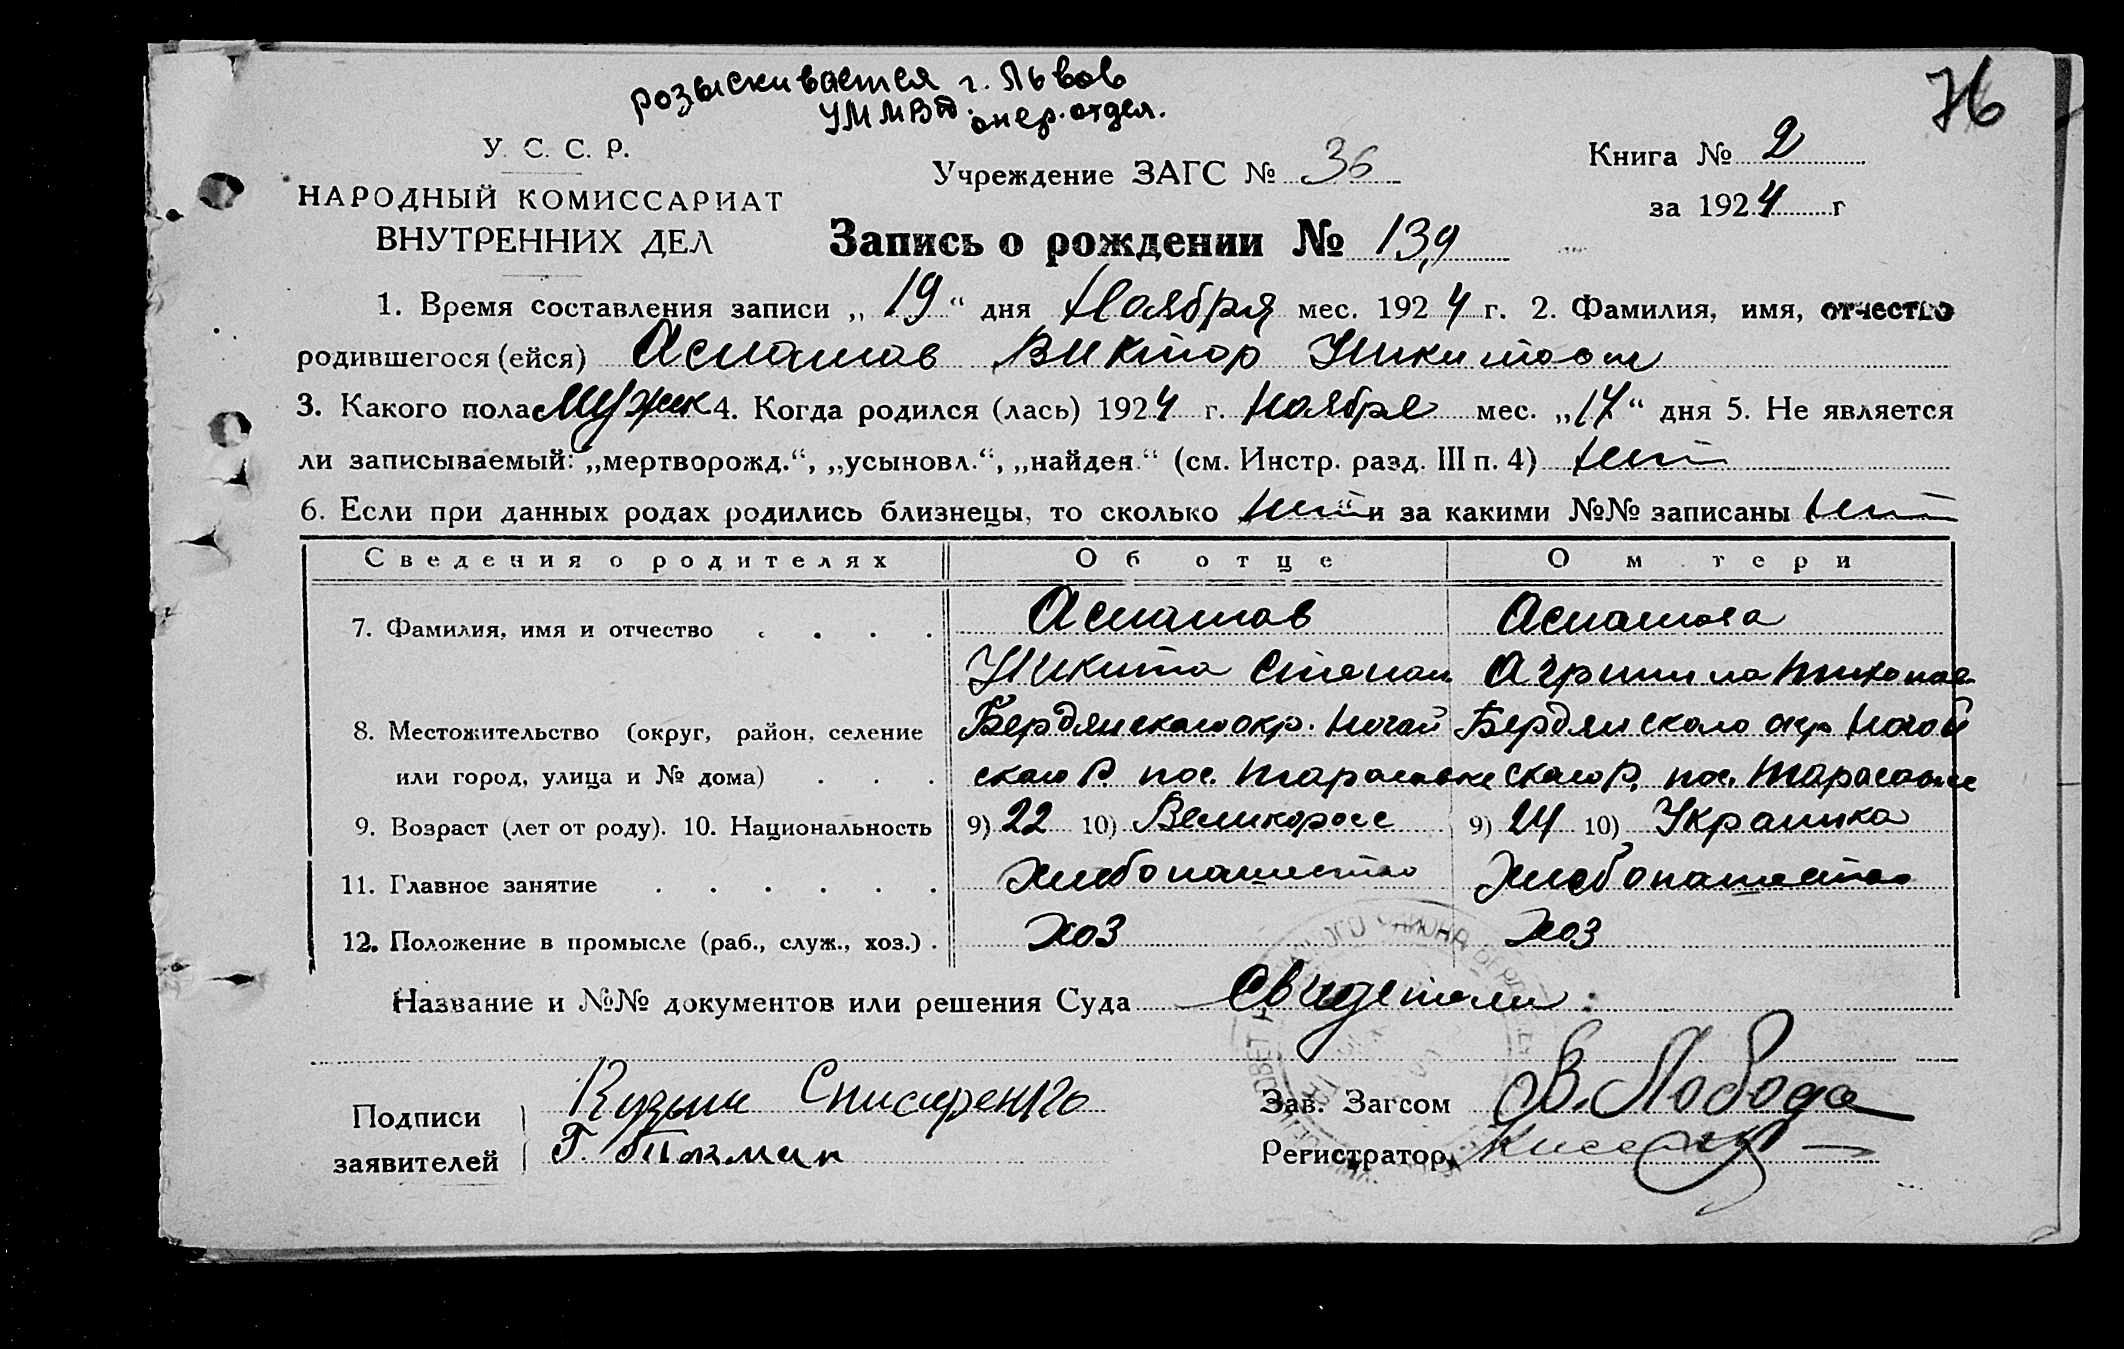 розыскивается г. Львов
УММВД. опер. отдел.
76
У. С. С. Р.
НАРОДНЫЙ КОМИССАРИАТ
ВНУТРЕННИХ ДЕЛ
Учреждение ЗАГС № 36
Книга № 2
за 1924 г
Запись о рождении № 139
1. Время составления записи „ 19 “ дня Ноября мес. 1924 г. 2. Фамилия, имя, отчество
родившегося (ейся) Асташов Виктор Никитович
3. Какого пола Мужск 4. Когда родился (лась) 1924 г. Ноября мес. „17“ дня 5. Не является
ли записываемый: „мертворожд.“, „усыновл.“, „найден.“ (см. Инстр. разд. III п. 4) нет
6. Если при данных родах родились близнецы, то сколько нет и за какими №№ записаны нет
Сведения о родителях Об отце О м тери
7. Фамилия, имя и отчество . . . . Асташов Асташова
Никита Степан
8. Местожительство (округ, район, селение Бердянского окр. Ногай Бердянского окр Ногой
или город, улица и № дома) . . . ского Р. пос. Тарасовке ского Р. пос. Тарасовке
9. Возраст (лет от роду). 10. Национальность 9) 22 10) Великоросс 9) 24 10) Украинка
11. Главное занятие . . . . . . Хлебопашество Хлебопашество
12. Положение в промысле (раб., служ., хоз.) . Хоз Хоз
Название и №№ документов или решения Суда Свидетели:
Подписи
заявителей
Зав. Загсом В. Лобода
Регистратор